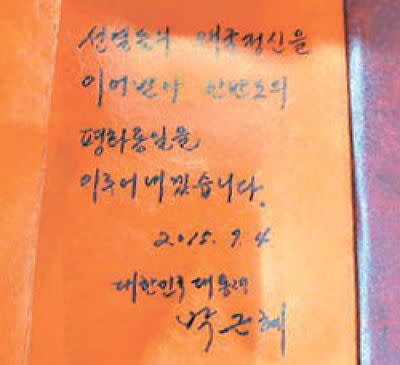 선열들의 애국정신을
이어받아 한반도의
평화통일을
이루어 내겠습니다.
2015. 9. 4
대한민국 대통령
박근혜